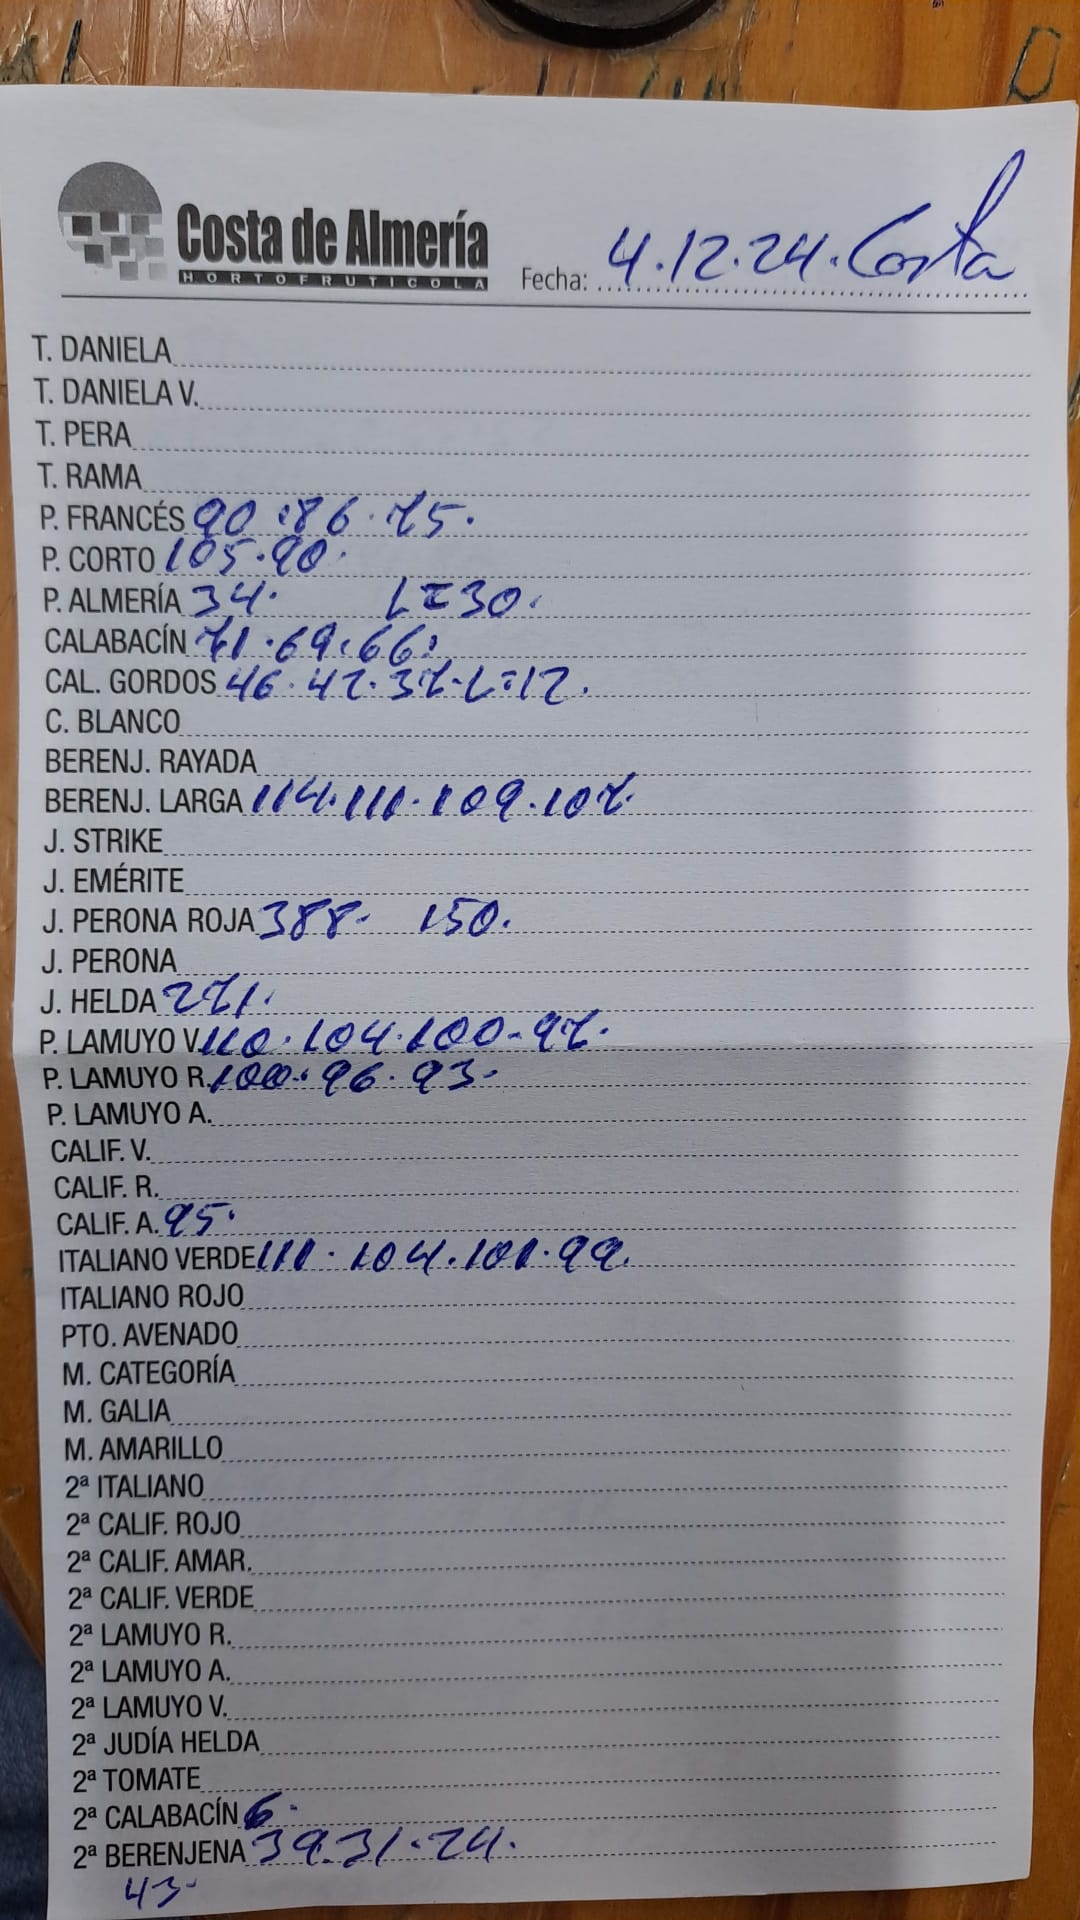 Costa de Almería
HORTOFRUTICOLA
Fecha: 4.12.24. Costa
T. DANIELA
T. DANIELA V.
T. PERA
T. RAMA
P. FRANCÉS 90.86.75.
P. CORTO 105.90.
P. ALMERÍA 34. L=30.
CALABACÍN 71.69.66.
CAL. GORDOS 46.42.37.L=12.
C. BLANCO
BERENJ. RAYADA
BERENJ. LARGA 114.111.109.107.
J. STRIKE
J. EMÉRITE
J. PERONA ROJA 388. 150.
J. PERONA
J. HELDA 271.
P. LAMUYO V. 110.104.100.97.
P. LAMUYO R. 100.96.93.
P. LAMUYO A.
CALIF. V.
CALIF. R.
CALIF. A. 95.
ITALIANO VERDE 111.104.101.99.
ITALIANO ROJO
PTO. AVENADO
M. CATEGORÍA
M. GALIA
M. AMARILLO
2ª ITALIANO
2ª CALIF. ROJO
2ª CALIF. AMAR.
2ª CALIF. VERDE
2ª LAMUYO R.
2ª LAMUYO A.
2ª LAMUYO V.
2ª JUDÍA HELDA
2ª TOMATE
2ª CALABACÍN 6.
2ª BERENJENA 39.31.24.
43.